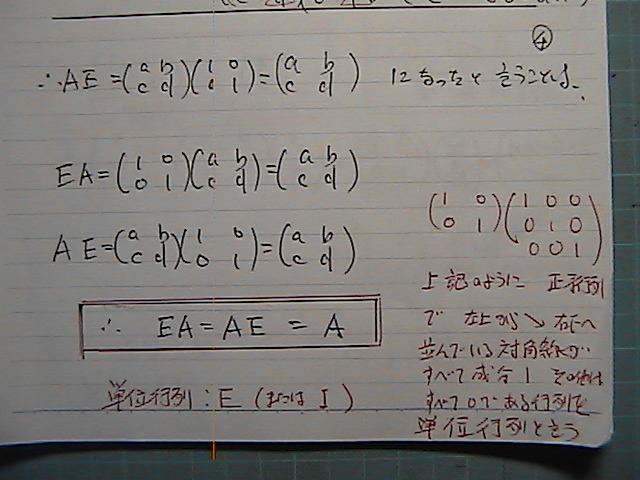 ④
∴AE=(a b c d)(1 0 0 1)=(a b c d) になったと言うことは、
EA=(1 0 0 1)(a b c d)=(a b c d)
AE=(a b c d)(1 0 0 1)=(a b c d)
∴ EA=AE=A
単位行列:E(または I)
(1 0 0 1)(1 0 0 0 1 0 0 0 1)
上記のように 正方行列
で 左上から↘右下へ
並んでいる対角線が
すべて成分1 その他は
すべて0である行列を
単位行列と言う